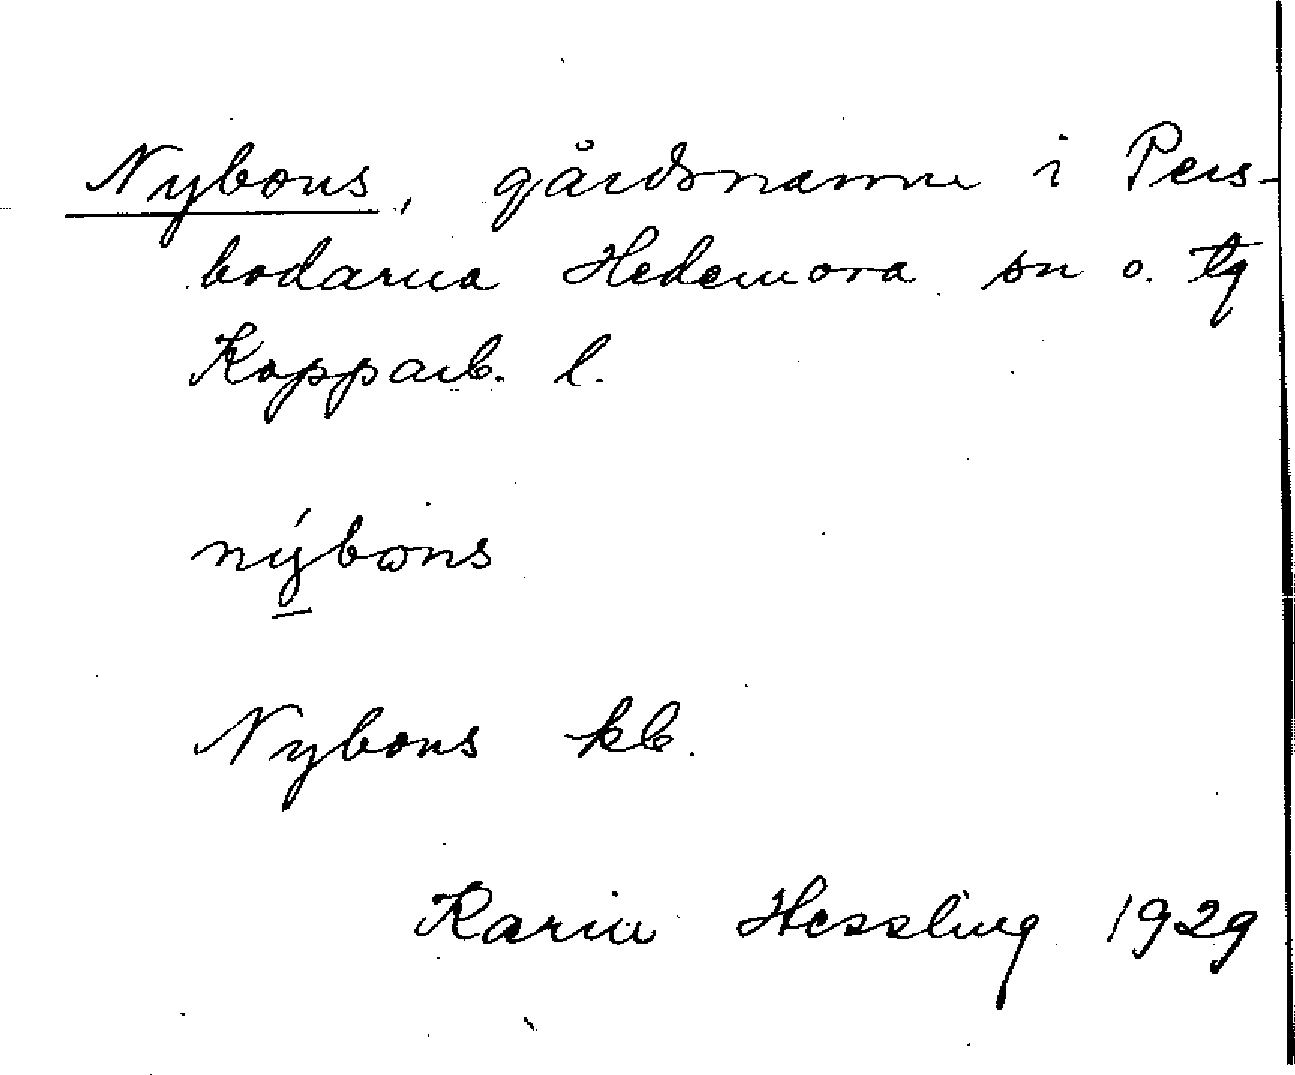 Nybons, gårdsnamn i Pers-
bodarna Hedemora sn o. tg
Kopparb. l.
nýbons
Nybons kb.
Karin Hessling 1929